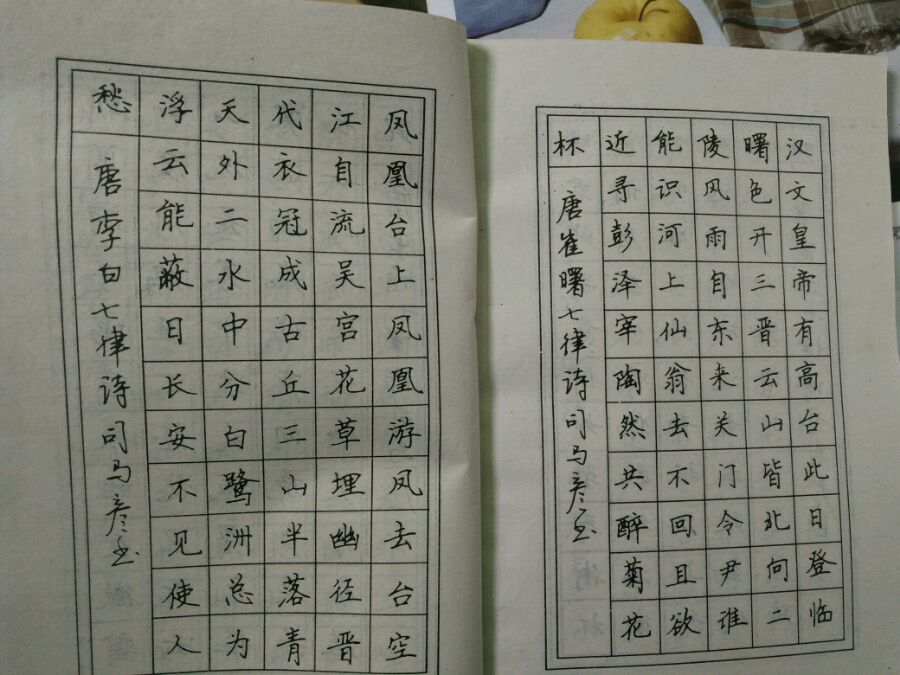 汉文皇帝有高台此日登临
曙色开三晋云山皆北向二
陵风雨自东来关门令尹谁
能识河上仙翁去不回且欲
近寻彭泽宰陶然共醉菊花
杯 唐崔曙七律诗司马彦书
凤凰台上凤凰游凤去台空
江自流吴宫花草埋幽径晋
代衣冠成古丘三山半落青
天外二水中分白鹭洲总为
浮云能蔽日长安不见使人
愁 唐李白七律诗司马彦书